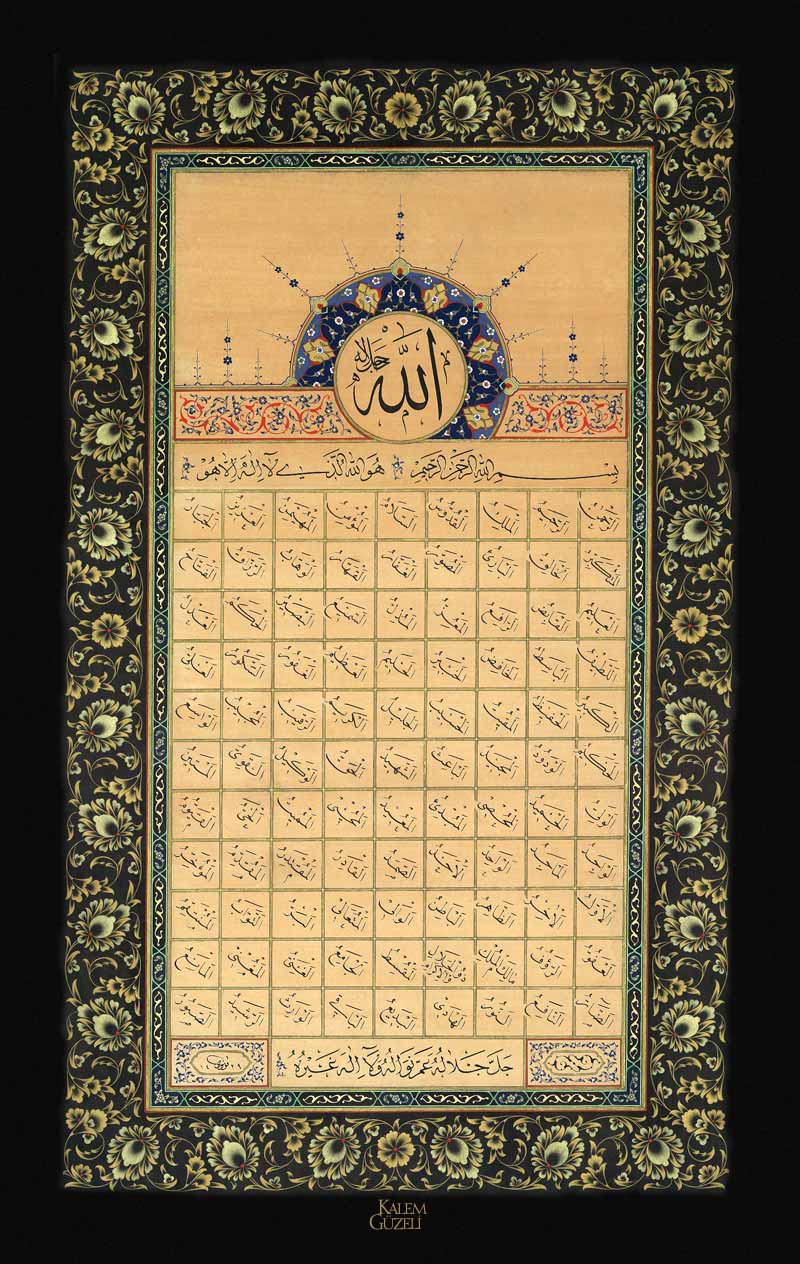 الله جل جلاله
بسم الله الرحمن الرحيم هو الله الذي لا اله الا هو
الرحمن الرحيم الملك القدوس السلام المؤمن المهيمن العزيز الجبار
المتكبر الخالق البارئ المصور الغفار القهار الوهاب الرزاق الفتاح
العليم القابض الرافع المعز المذل السميع البصير الحكم العدل
اللطيف الباسط الخافض الخبير الحليم العظيم الغفور الشكور العلي
الكبير الحفيظ المقيت الحسيب الجليل الكريم الرقيب المجيب الواسع
الحكيم الودود المجيد الباعث الشهيد الحق الوكيل القوي المتين
الولي الحميد المحصي المبدئ المعيد المحيي المميت الحي القيوم
الواجد الماجد الواحد الاحد الصمد القادر المقتدر المقدم المؤخر
الاول الاخر الظاهر الباطن الوالي المتعالي البر التواب المنتقم
العفو الرؤف مالك الملك ذو الجلال والاكرام المقسط الجامع الغني المغني المانع
الضار النافع النور الهادي البديع الباقي الوارث الرشيد الصبور
جل جلاله عم نواله ولا اله غيره
KALEM
GÜZELİ